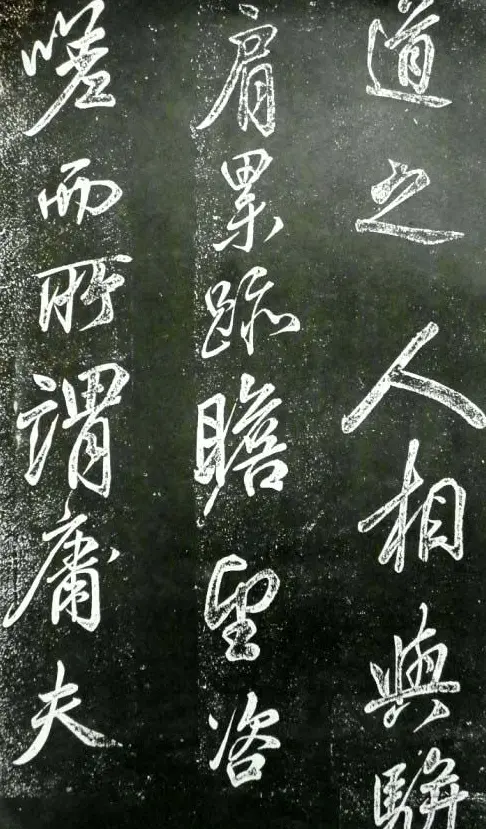 道之人相與駢
肩累跡瞻望咨
嗟而所謂庸夫